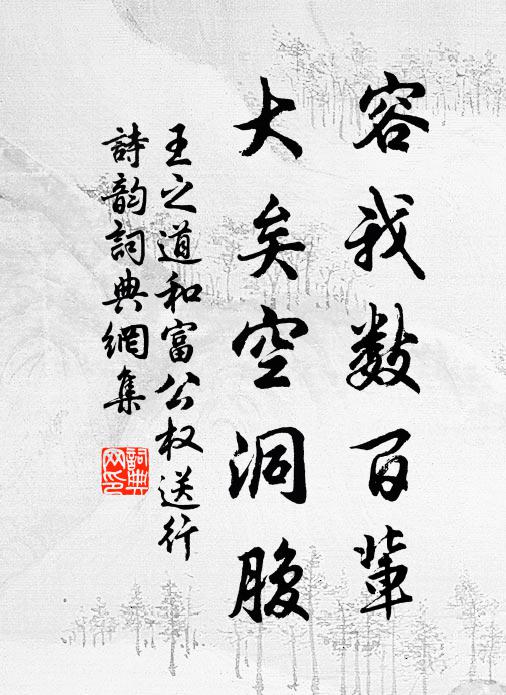 容我数百輩
大矣空洞腹
王之道和富公权送行
詩韵詞典網集
詞典网印